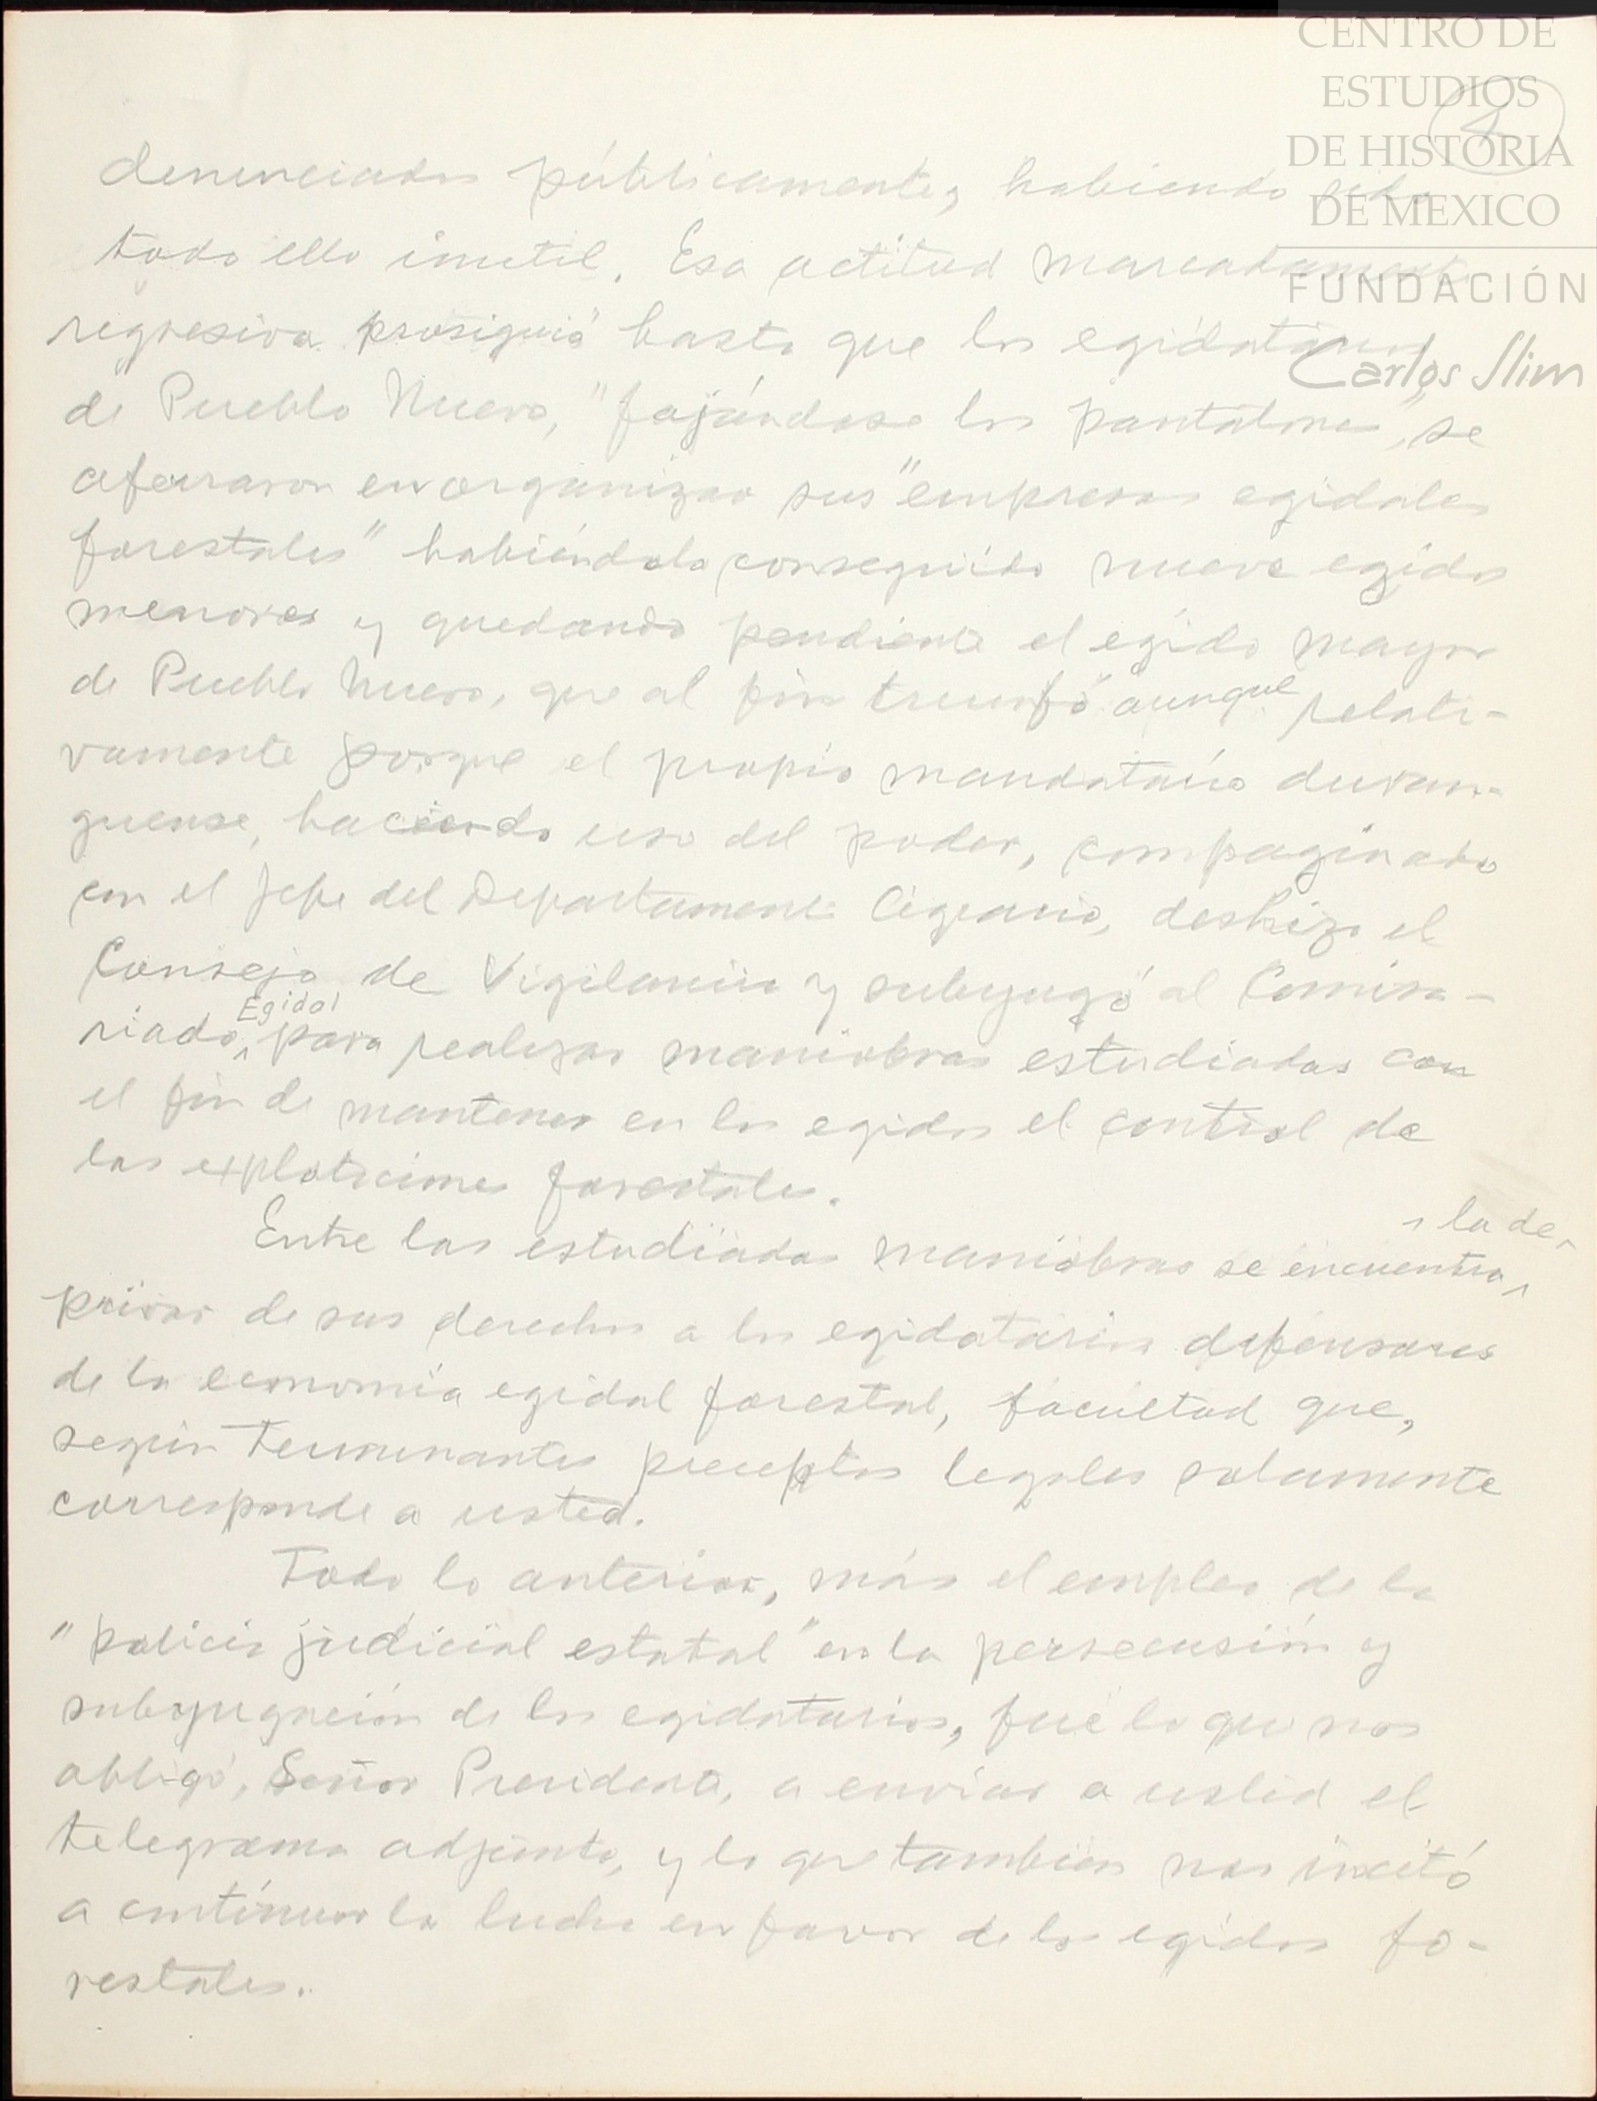 CENTRO DE
ESTUDIOS
DE HISTORIA
DE MEXICO
FUNDACIÓN
Carlos Slim
denunciados públicamente, habiendo sido
todo ello inutil. Esa actitud marcadamente
regresiva prosiguió hasta que los egidatarios
de Pueblo Nuevo, "fajándose los pantalones", se
aferraron en organizar sus "empresas egidales
forestales" habiéndolo conseguido nueve egidos
menores y quedando pendiente el egido mayor
de Pueblo Nuevo, que al fin triunfó aunque relati-
vamente porque el propio mandatario duran-
guense, haciendo uso del poder, compaginado
con el jefe del Departamento Agrario, deshizo el
Consejo de Vigilancia y subyugó al Comisa-
riado Egidal, para realizar maniobras estudiadas con
el fin de mantener en los egidos el control de
las explotaciones forestales.
Entre las estudiadas maniobras se encuentra la de
privar de sus derechos a los egidatarios defensores
de la economía egidal forestal, facultad que,
según terminantes preceptos legales solamente
corresponde a usted.
Todo lo anterior, más el empleo de la
"policía judicial estatal" en la persecusión y
subyugación de los egidatarios, fué lo que nos
obligó, Señor Presidente, a enviar a usted el
telegrama adjunto, y lo que también nos incitó
a continuar la lucha en favor de los egidos fo-
restales.